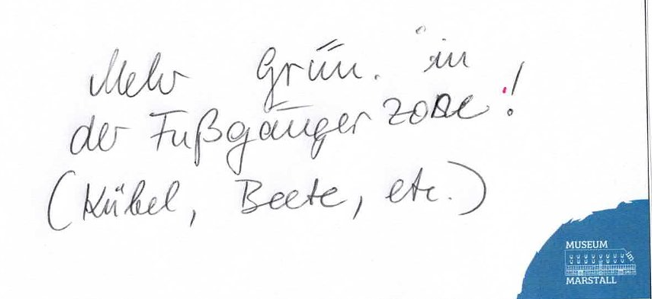 Mehr Grün in
der Fußgängerzone!
(Kübel, Beete, etc.)
MUSEUM
IM
MARSTALL